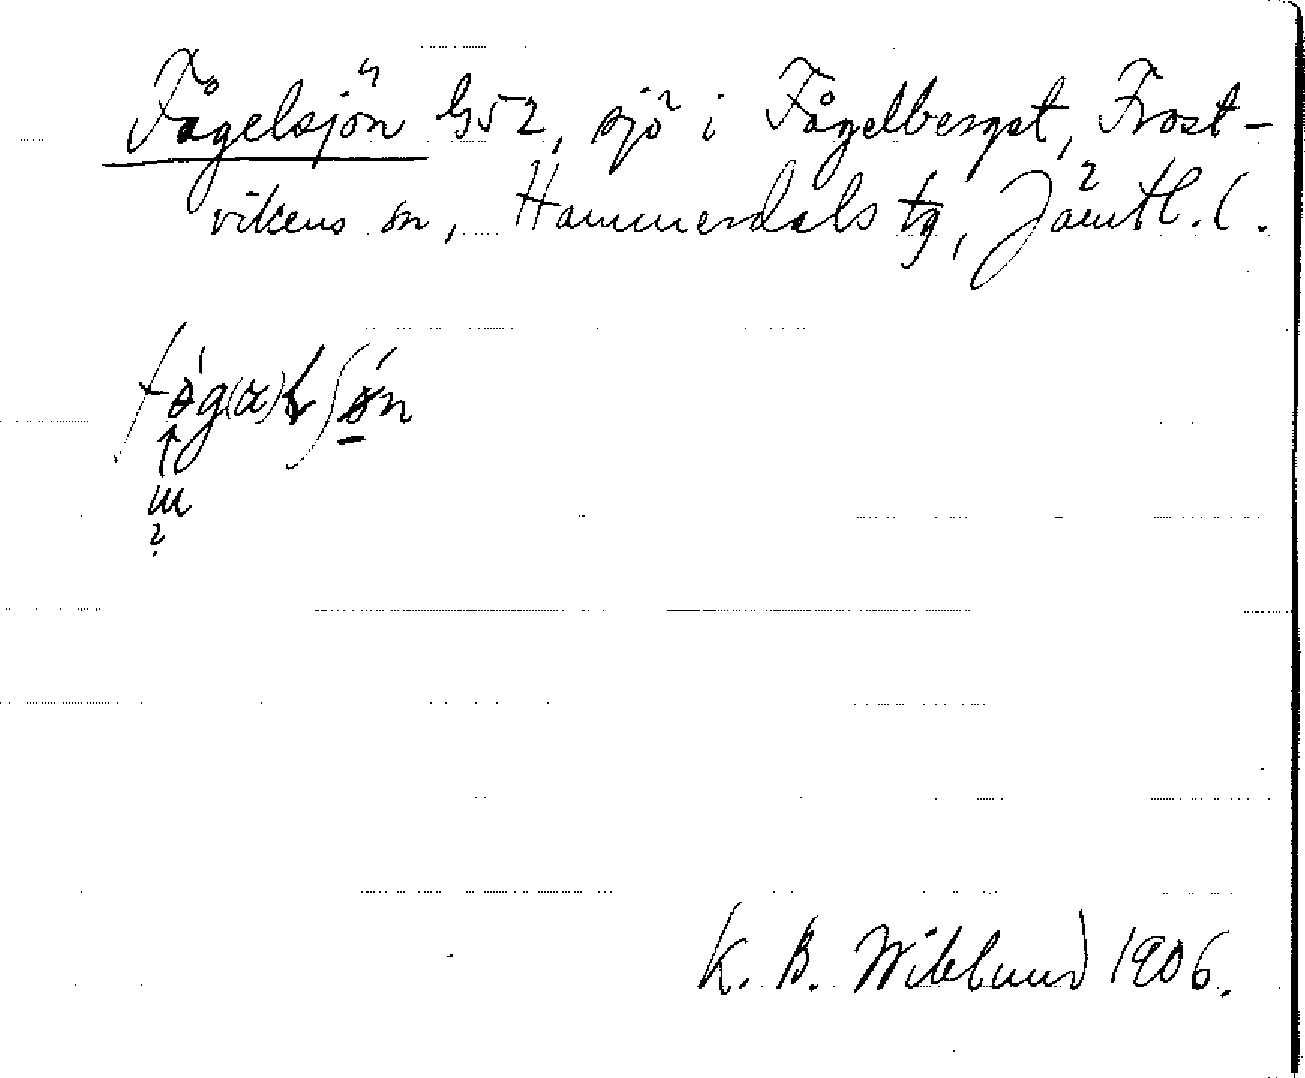 Fågelsjön G52, sjö i Fågelberget, Frost-
vikens sn, Hammerdals tg, Jämtl. l.
K. B. Wiklund 1906.